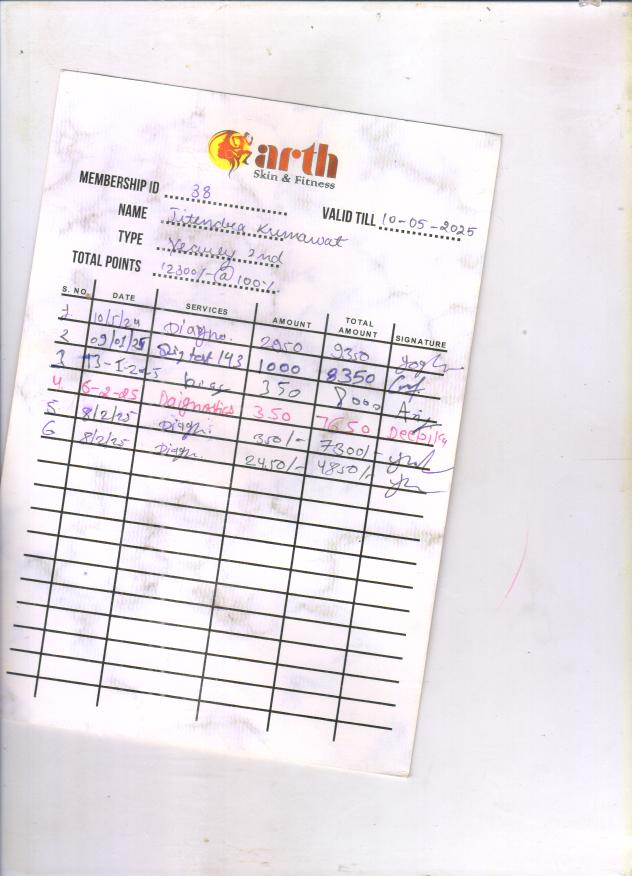 arth
Skin & Fitness
MEMBERSHIP ID 38
NAME Jitendra Kumawat VALID TILL 10-05-2025
TYPE 2nd
TOTAL POINTS 12300/- @ 100%
S. NO. DATE SERVICES AMOUNT TOTAL AMOUNT SIGNATURE
1. 10/5/24 Diagno. 2950 9350
2 09/01/25 1000 8350
3 13-1-2025 350 8000
4 6-2-25 Daignostics 350 7650 Deepika
5 8/2/25 Diagn. 350/- 7300/-
6 8/2/25 Diagn. 2450/- 4850/-